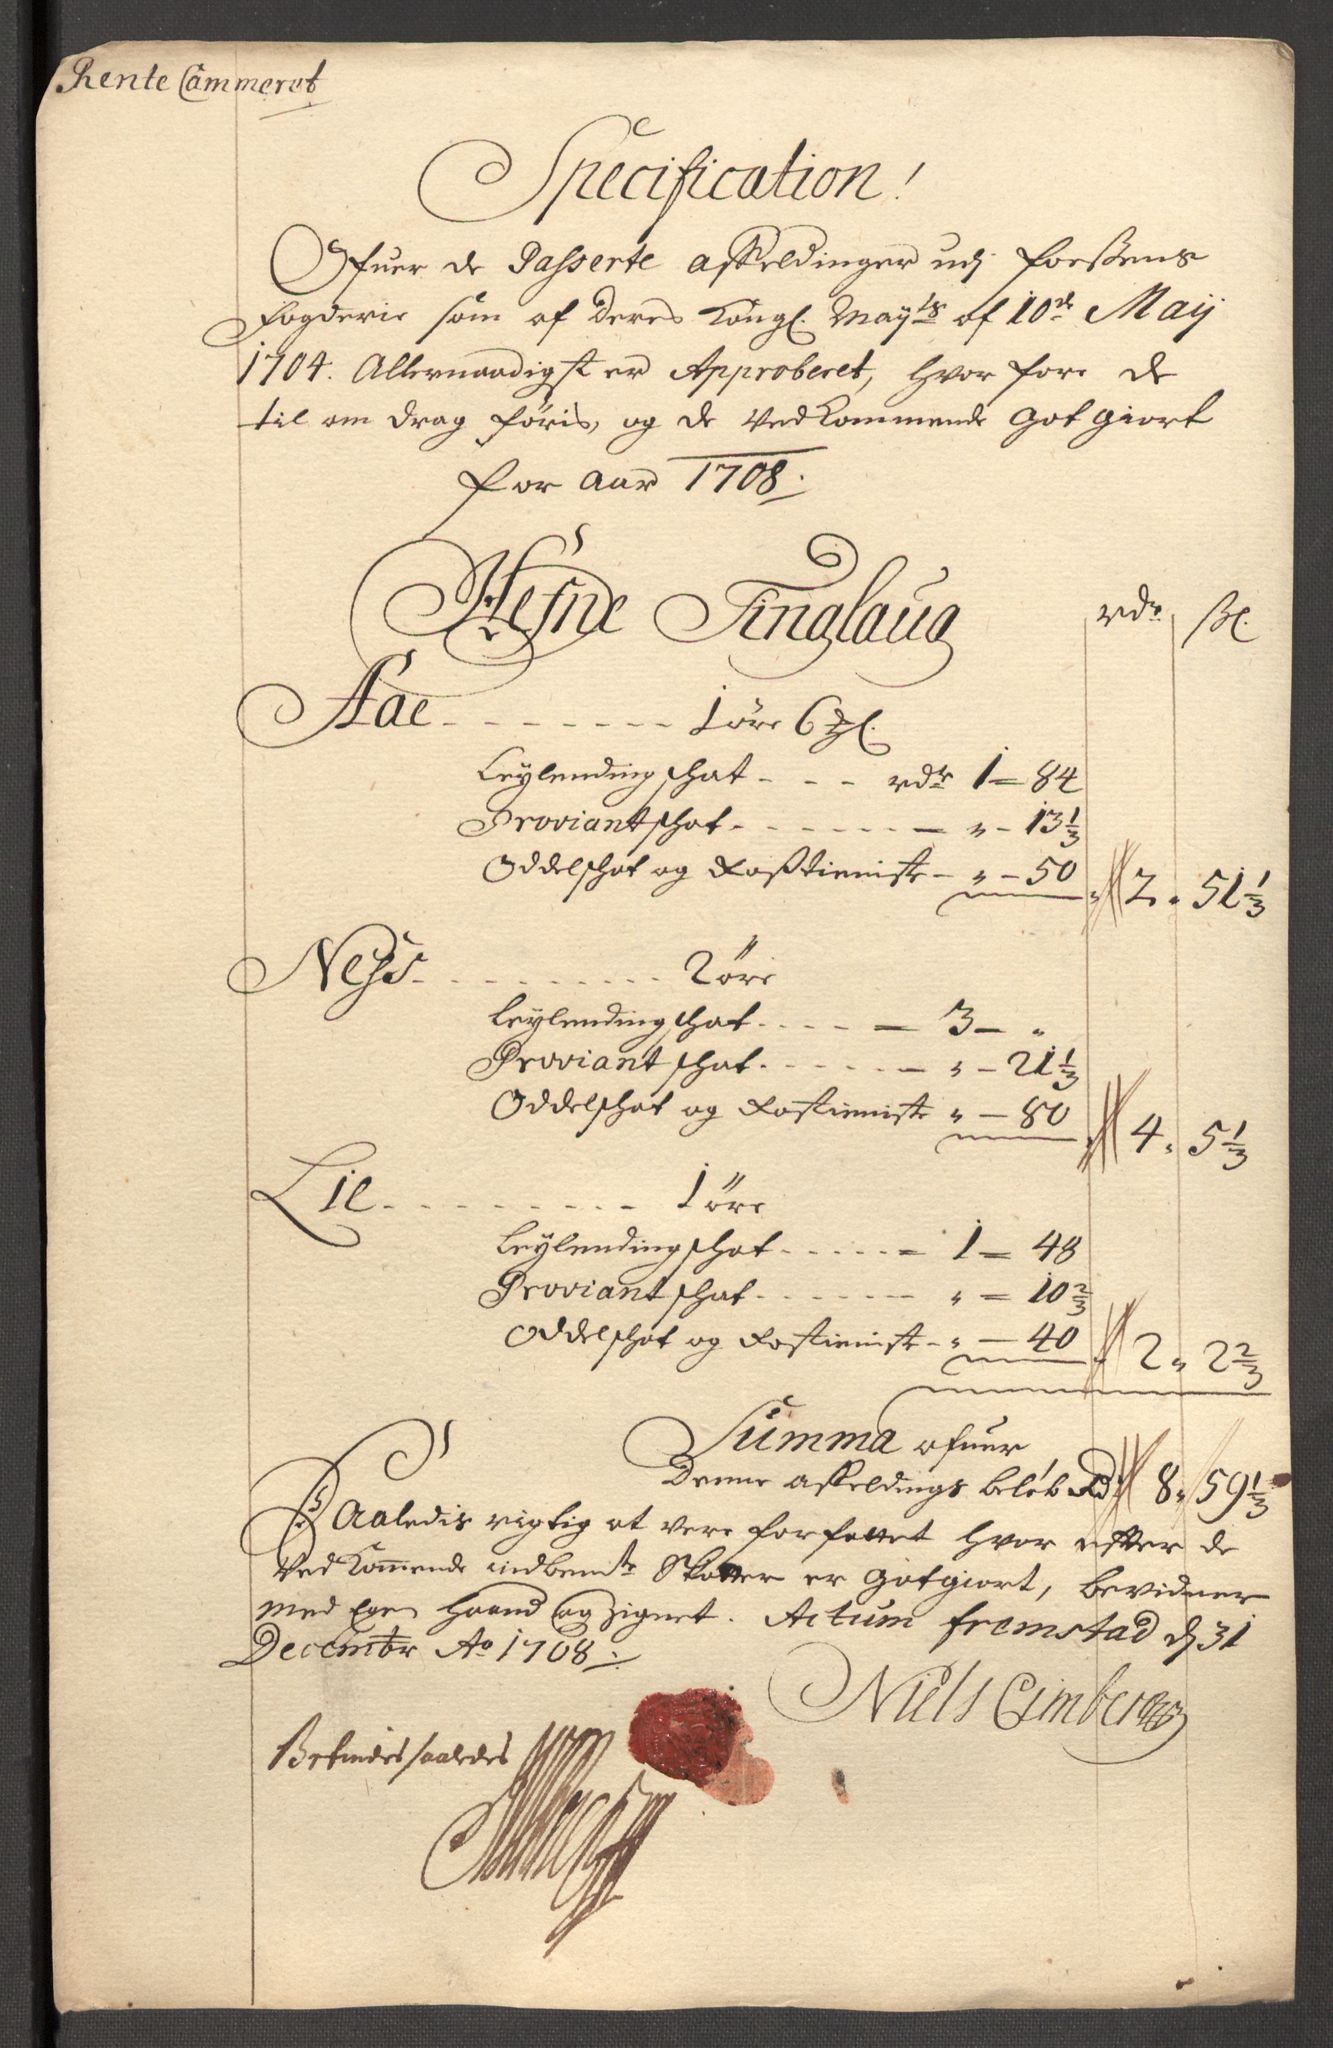 Rente Cammeret
Specification!
Ofuer de Passerte affeldinger udj Foessens
Fogderie som af Deres Kongl. Mayts af 10de Maij
1704. Allernaadigst er Approberet, hvor fore de
til om drag föris, og de Vedkommende Got giort
for Aar 1708.
Hefne Tinglaug rdr sk.
Aae - - - - - - - 1 öre 6 
Leylending schat - - - rdr 1 = 84
Proviant schat - - - - - - „ - 13 1/3
Oddelschat og Rosstieniste - „ - 50 2 „ 51 1/3
Ness - - - - - - - - 2 öre
Leylending schat - - - - 3 - „
Proviant schat - - - - - - „ - 21 1/3
Oddelschat og Rostieniste „ - 80 4 „ 5 1/3
Lie - - - - - - - - 1 öre
Leylending schat - - - - - 1 = 48
Proviant schat - - - - - - „ = 10 2/3
Oddelschat og Rostieniste - „ - 40 2 „ 2 2/3
Summa ofuer
Denne affeldings beløb Rdr 8 „ 59 1/3
Saaledis rigtig at vere forfattet hvor efter de
Vedkommende indbemte Skatter er Gotgiort, bevidner
med Egen Haand og Zignet. Actum Fremstad d 31
Decembr Ao 1708.
Niels Cimberg
Befindes saaledes